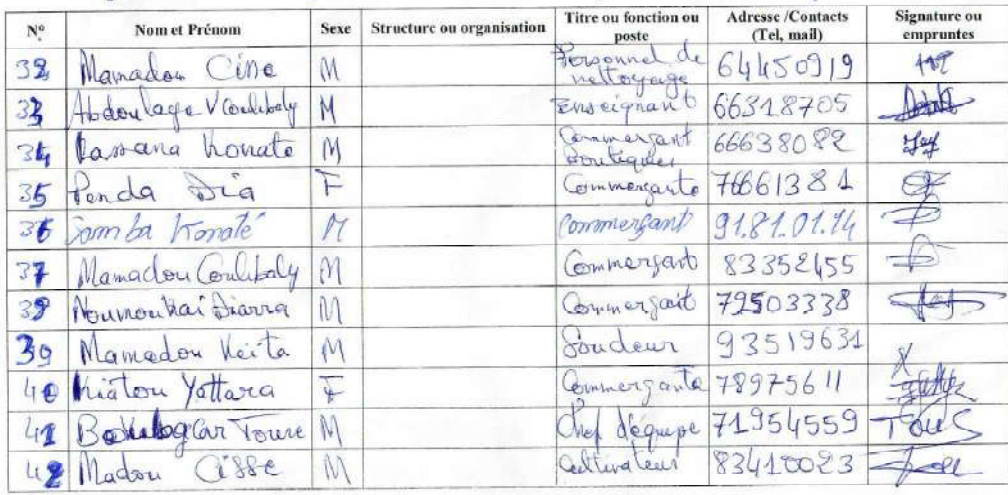 N° Nom et Prénom Sexe Structure ou organisation Titre ou fonction ou poste Adresse /Contacts (Tel, mail) Signature ou empruntes
32 Mamadou Cisse M Personnel de nettoyage 64450919
33 Abdoulaye V Coulibaly M Enseignant 66318705
34 Lassana Konate M Commerçant boutiquier 66638082
35 Penda Dia F Commerçante 76661381
36 Samba Konaté M Commerçant 91.81.01.14
37 Mamadou Coulibaly M Commerçant 83352455
38 Diarra M Commerçait 79503338
39 Mamadou Keita M Soudeur 93519631
40 Kiatou Yattara F Commerçante 78975611
41 Toure M Chef d'équipe 71954559
42 Madou Cisse M Cultivateur 83410023